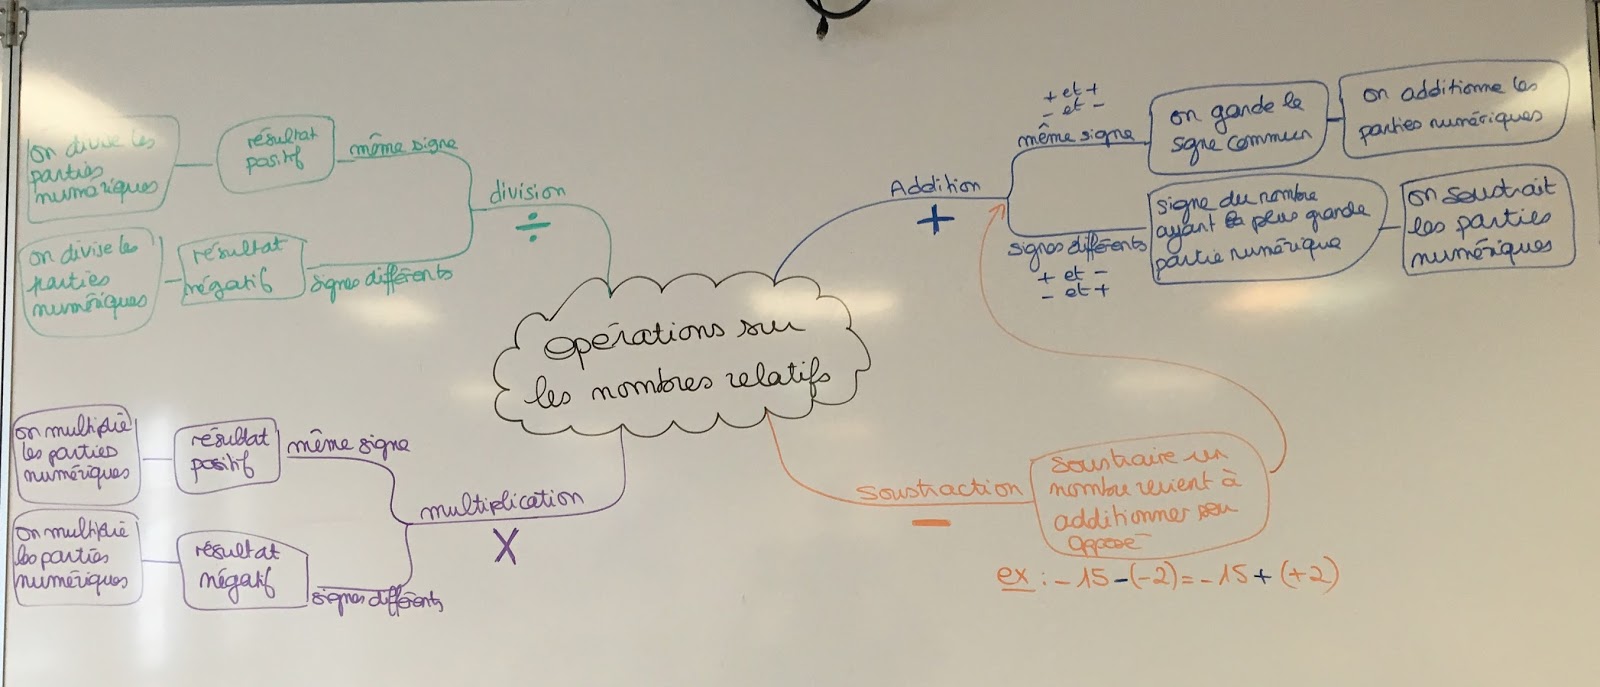 opérations sur
les nombres relatifs
Addition
+
+ et +
- et -
même signe
on garde le
signe commun
on additionne les
parties numériques
signes différents
+ et -
- et +
signe du nombre
ayant la plus grande
partie numérique
on soustrait
les parties
numériques
soustraction
-
soustraire un
nombre revient à
additionner son
opposé
ex : -15-(-2)=-15+(+2)
division
÷
même signe
résultat
positif
on divise les
parties
numériques
signes différents
résultat
négatif
on divise les
parties
numériques
multiplication
X
même signe
résultat
positif
on multiplie
les parties
numériques
signes différents
résultat
négatif
on multiplie
les parties
numériques